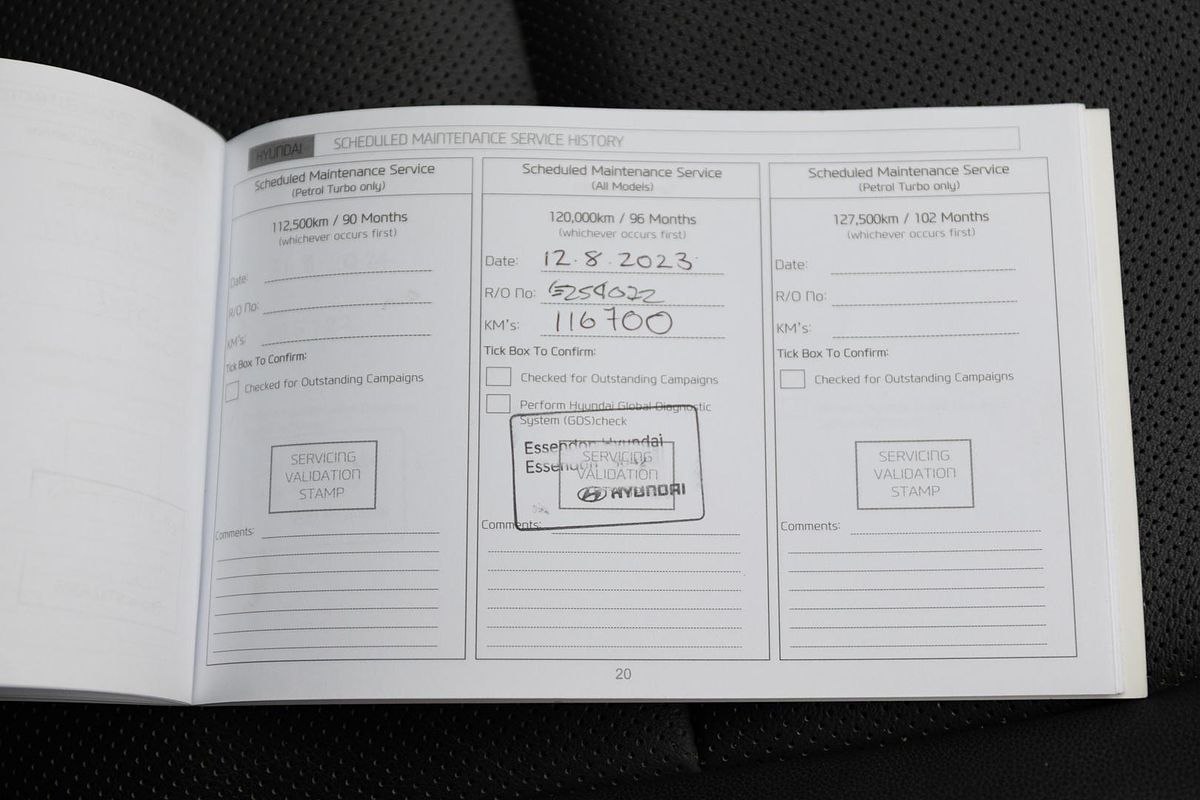 HYUNDAI SCHEDULED MAINTENANCE SERVICE HISTORY
Scheduled Maintenance Service
(Petrol Turbo only)
112,500km / 90 Months
(whichever occurs first)
Date:
R/O No:
KM's:
Tick Box To Confirm:
Checked for Outstanding Campaigns
SERVICING
VALIDATION
STAMP
Comments:
Scheduled Maintenance Service
(All Models)
120,000km / 96 Months
(whichever occurs first)
Date: 12.8.2023
R/O No:
KM's: 116700
Tick Box To Confirm:
Checked for Outstanding Campaigns
Perform Hyundai Global Diagnostic
System (GDS)check
Essendon Hyundai
Essendon
SERVICING
VALIDATION
HYUNDAI
Comments:
Scheduled Maintenance Service
(Petrol Turbo only)
127,500km / 102 Months
(whichever occurs first)
Date:
R/O No:
KM's:
Tick Box To Confirm:
Checked for Outstanding Campaigns
SERVICING
VALIDATION
STAMP
Comments:
20